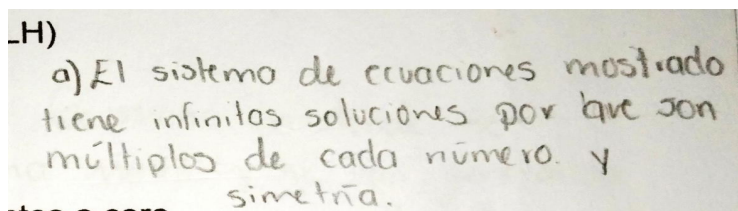 LH)
a) El sistema de ecuaciones mostrado
tiene infinitas soluciones por que son
múltiplos de cada número. y
simetría.